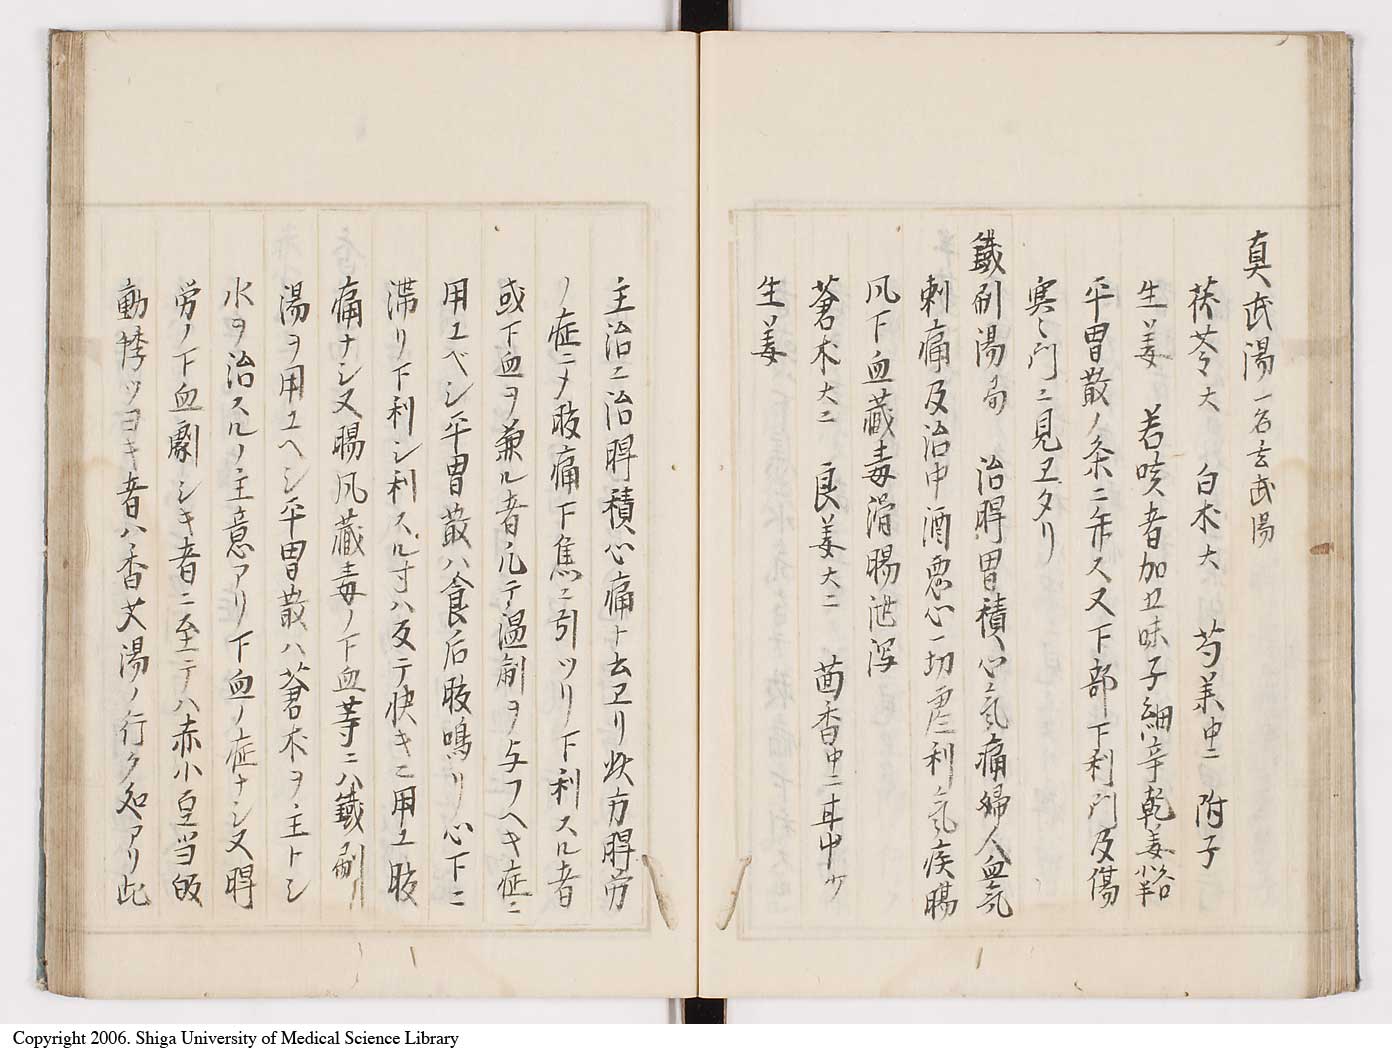 真武湯 一名玄武湯
茯苓大 白朮大 芍薬中二 附子
生姜 若咳者加五味子細辛乾姜
平胃散ノ条ニ弁ス又下部下利門及傷
寒々門ニ見エタリ
鐵刷湯局 治脾胃積心気痛婦人血気
刺痛及治中酒悪心一切虚利気疾腸
風下血蔵毒滑腸泄瀉
蒼朮大二 良姜大二 茴香中二 甘中少
生姜
主治ニ治脾積心痛ト云エリ此方脾労
ノ症ニ〆腹痛下焦ニ引ツリ下利スル者
或下血ヲ兼ル者凡テ温剤ヲ与フヘキ症ニ
用ユベシ平胃散ハ食后腹鳴リ心下ニ
滞リ下利シ利スル寸ハ反テ快キニ用ユ腹
痛ナシ又腸風蔵毒ノ下血等ニハ鐵刷
湯ヲ用ユヘシ平胃散ハ蒼朮ヲ主トシ
水ヲ治スルノ主意アリ下血ノ症ナシ又脾
労ノ下血劇シキ者ニ至テハ赤小豆当皈
動悸ツヨキ者ハ香艾湯ノ行ク処アリ此
Copyright 2006. Shiga University of Medical Science Library